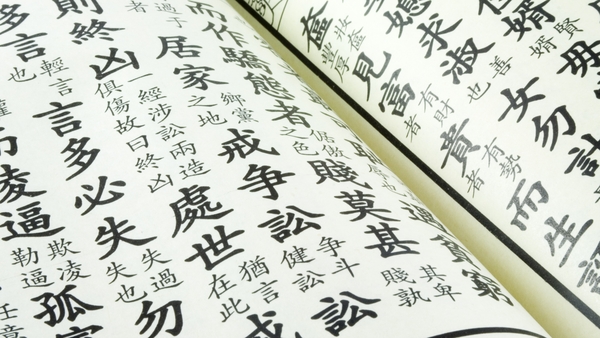 婿賢婿毋
媳求淑善也女勿計
奩妝奩豐厚見富有財者貴有勢者而生
而作驕態者倨傲之色賤莫甚其卑賤孰
過于者居家鄉黨之地戒争訟争斗健訟訟
則終凶一經涉訟兩造俱傷故曰終凶處世猶言在此戒
多言輕言也言多必失失過失也勿
凌逼欺凌勒逼孤